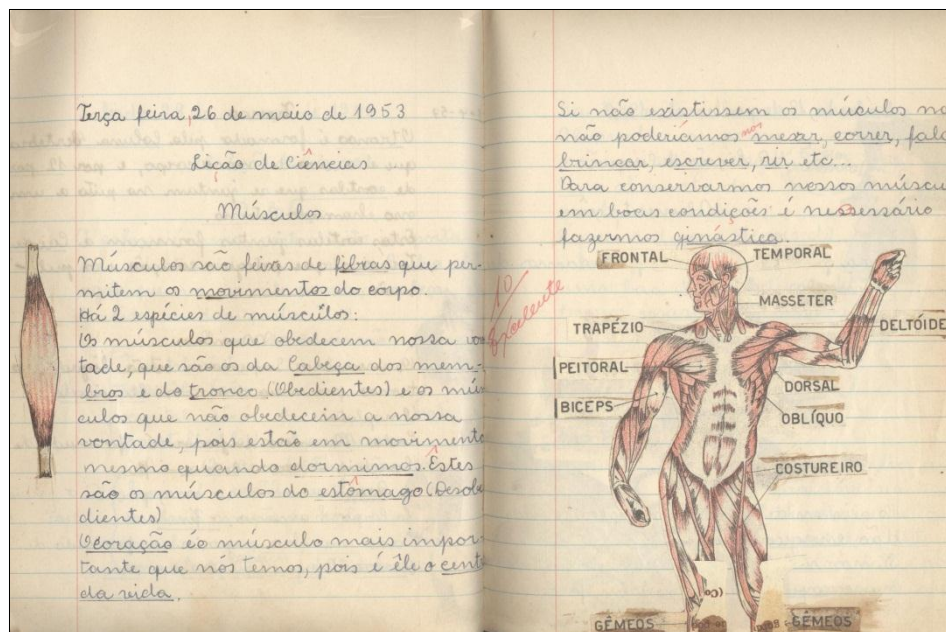 Terça feira, 26 de maio de 1953
Lição de Ciências
Músculos
Músculos são feixas de fibras que per-
mitem os movimentos do corpo.
Há 2 espécies de músculos:
Os músculos que obedecem nossa von
tade, que são os da Cabeça dos mem-
bros e do tronco (Obedientes) e os mús
culos que não obedecem a nossa
vontade, pois estão em movimento
mesmo quando dormimos. Êstes
são os músculos do estômago (Desobe
dientes)
O coração é o músculo mais impor-
tante que nós temos, pois é êle o cent
da vida.
10
Excelente
Si não existissem os múculos no
não poderíamos nos mexer, correr, fala
brincar, escrever, rir etc...
Para conservarmos nossos múscu
em bôas condições é nessessário
fazermos ginástica.
FRONTAL
TEMPORAL
MASSETER
TRAPÉZIO
DELTÓIDE
PEITORAL
DORSAL
BICEPS
OBLÍQUO
COSTUREIRO
GÊMEOS
GÊMEOS